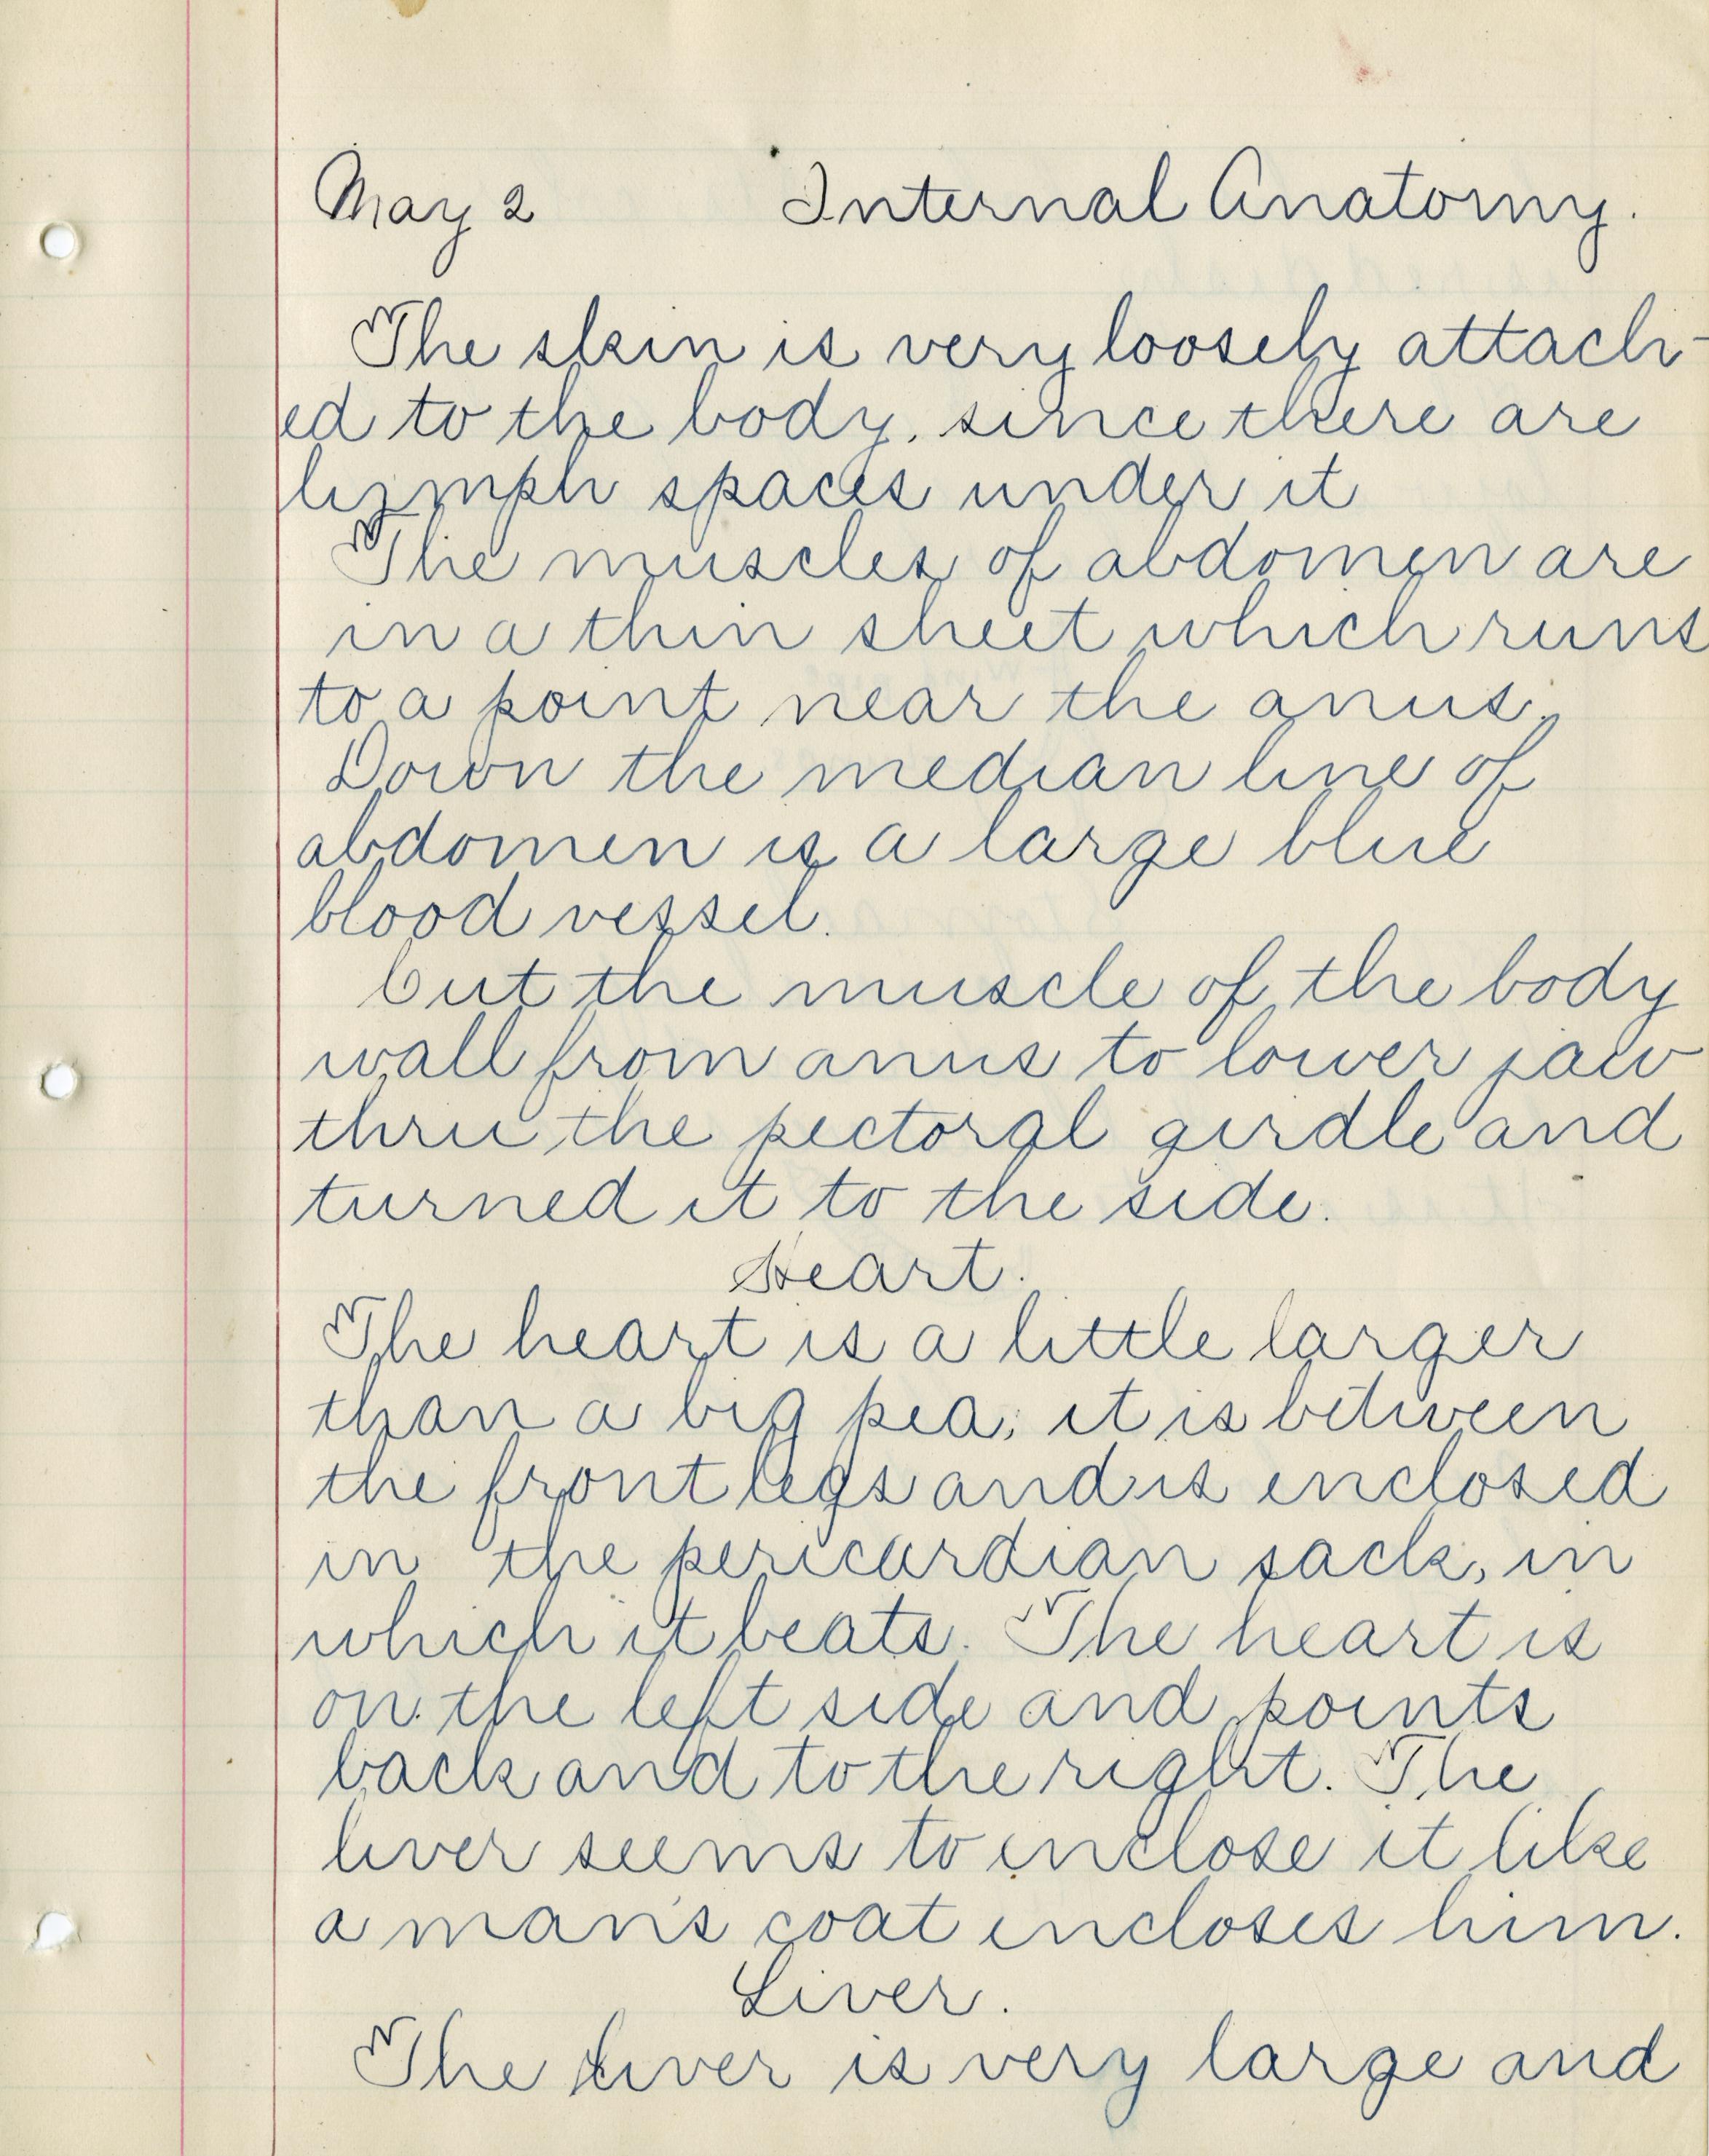 May 2 Internal Anatomy.
The skin is very loosely attach-
ed to the body, since there are
lymph spaces under it
The muscles of abdomen are
in a thin sheet which runs
to a point near the anus.
Down the median line of
abdomen is a large blue
blood vessel.
Cut the muscle of the body
wall from anus to lower jaw
thru the pectoral girdle and
turned it to the side.
Heart.
The heart is a little larger
than a big pea; it is between
the front legs and is enclosed
in the pericardian sack, in
which it beats. The heart is
on the left side and points
back and to the right. The
liver seems to enclose it like
a man's coat encloses him.
Liver.
The liver is very large and